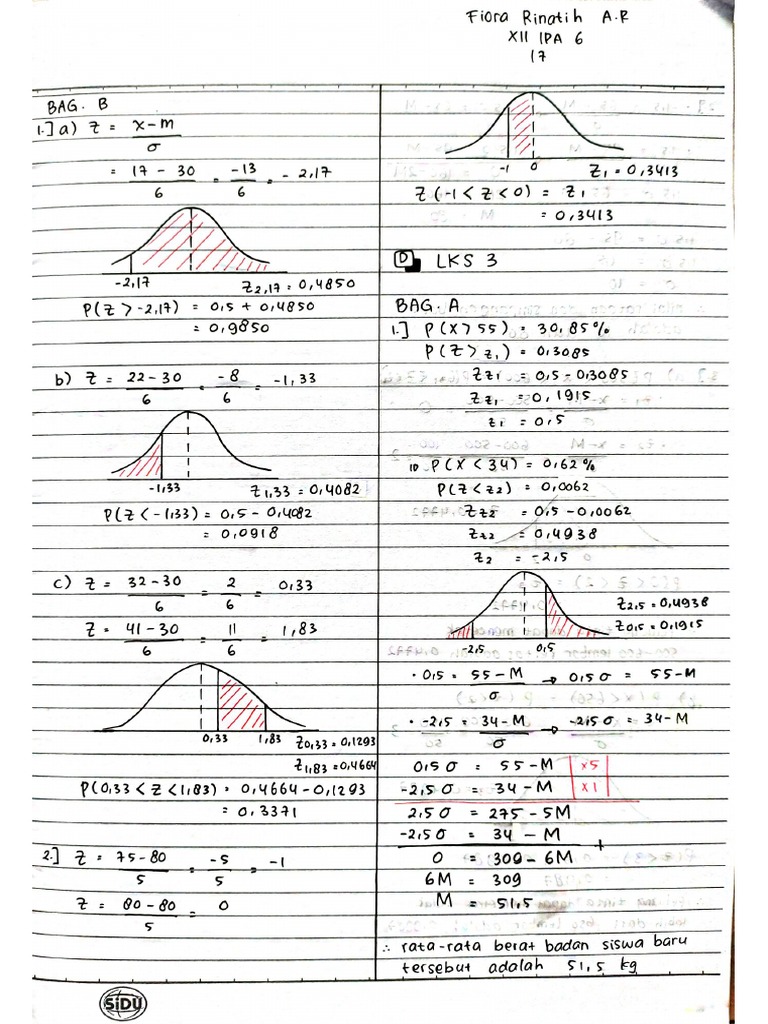 Fiora Rinatih A.R
XII IPA 6
17
BAG. B
1.] a) Z = x-m / σ
= 17 - 30 / 6 = -13 / 6 = - 2,17
-2,17
Z2,17 = 0,4850
P(Z > -2,17) = 0,5 + 0,4850
= 0,9850
b) Z = 22 - 30 / 6 = -8 / 6 = -1,33
-1,33
Z1,33 = 0,4082
P(Z < -1,33) = 0,5 - 0,4082
= 0,0918
c) Z = 32 - 30 / 6 = 2 / 6 = 0,33
Z = 41 - 30 / 6 = 11 / 6 = 1,83
0,33 1,83
Z0,33 = 0,1293
Z1,83 = 0,4664
P(0,33 < Z < 1,83) = 0,4664 - 0,1293
= 0,3371
2.] Z = 75 - 80 / 5 = -5 / 5 = -1
Z = 80 - 80 / 5 = 0
-1 0
Z1 = 0,3413
Z (-1 < Z < 0) = Z1
= 0,3413
D LKS 3
BAG. A
1.] P(X > 55) = 30,85%
P(Z > z1) = 0,3085
Zz1 = 0,5 - 0,3085
Zz1 = 0,1915
z1 = 0,5
P(X < 34) = 0,62%
P(Z < z2) = 0,0062
Zz2 = 0,5 - 0,0062
Zz2 = 0,4938
z2 = -2,5
Z2,5 = 0,4938
Z0,5 = 0,1915
-2,5 0,5
· 0,5 = 55 - M / σ → 0,5 σ = 55 - M
· -2,5 = 34 - M / σ → -2,5 σ = 34 - M
0,5 σ = 55 - M | x5
-2,5 σ = 34 - M | x1
2,5 σ = 275 - 5M
-2,5 σ = 34 - M +
0 = 309 - 6M
6M = 309
M = 51,5
∴ rata-rata berat badan siswa baru
tersebut adalah 51,5 kg
SiDU